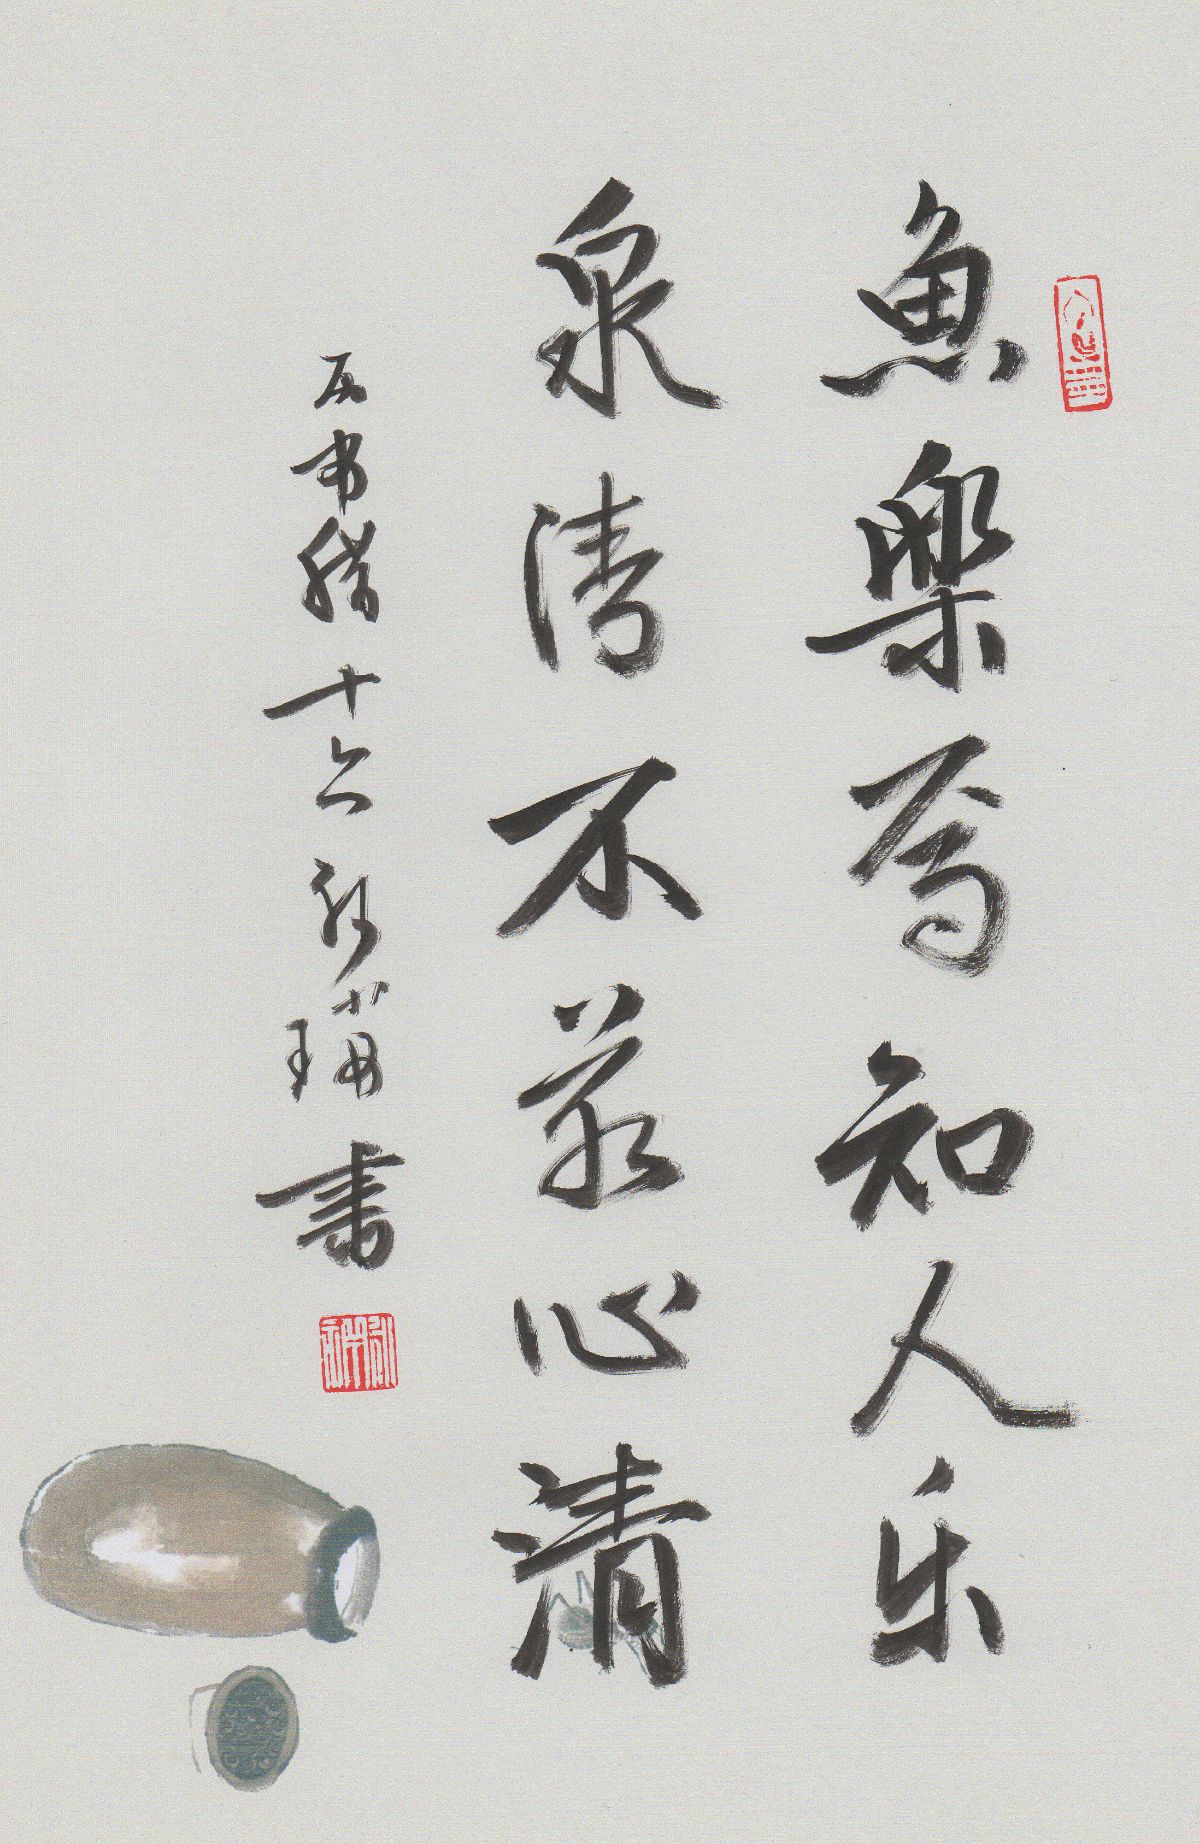 魚樂焉知人乐
泉清不若心清
丙申腊十六書